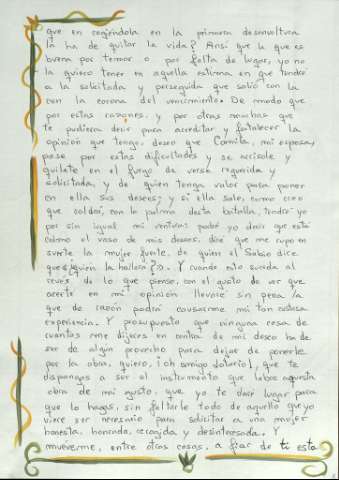 que en cogiéndola en la primera desenvoltura
la ha de quitar la vida? Ansí que la que es
buena por temor o por falta de lugar, yo no
la quiero tener en aquella estima en que tendré
a la solicitada y perseguida que salió con la
con la corona del vencimiento. De modo que
por estas razones, y por otras muchas que
te pudiera decir para acreditar y fortalecer la
opinión que tengo, deseo que Camila, mi esposa,
pase por estas dificultades y se acrisole y
quilate en el fuego de verse requerida y
solicitada, y de quien tenga valor para poner
en ella sus deseos; y si ella sale, como creo
que saldrá, con la palma desta batalla, tendré yo
por sin igual mi ventura: podré yo decir que está
colmo el vaso de mis deseos, diré que me cupo en
suerte la mujer fuerte, de quien el Sabio dice
que «¿quién la hallará?». Y cuando esto suceda al
revés de lo que pienso, con el gusto de ver que
acerté en mi opinión llevaré sin pena la
que de razón podrá causarme mi tan costosa
experiencia. Y prosupuesto que ninguna cosa de
cuantas me dijeres en contra de mi deseo ha de
ser de algún provecho para dejar de ponerle
por la obra, quiero, ¡oh amigo Lotario!, que te
dispongas a ser el instrumento que labre aquesta
obra de mi gusto, que yo te daré lugar para
que lo hagas, sin faltarte todo de aquello que yo
viere ser necesario para solicitar a una mujer
honesta, honrada, recogida y desinteresada. Y
muéveme, entre otras cosas, a fiar de ti esta